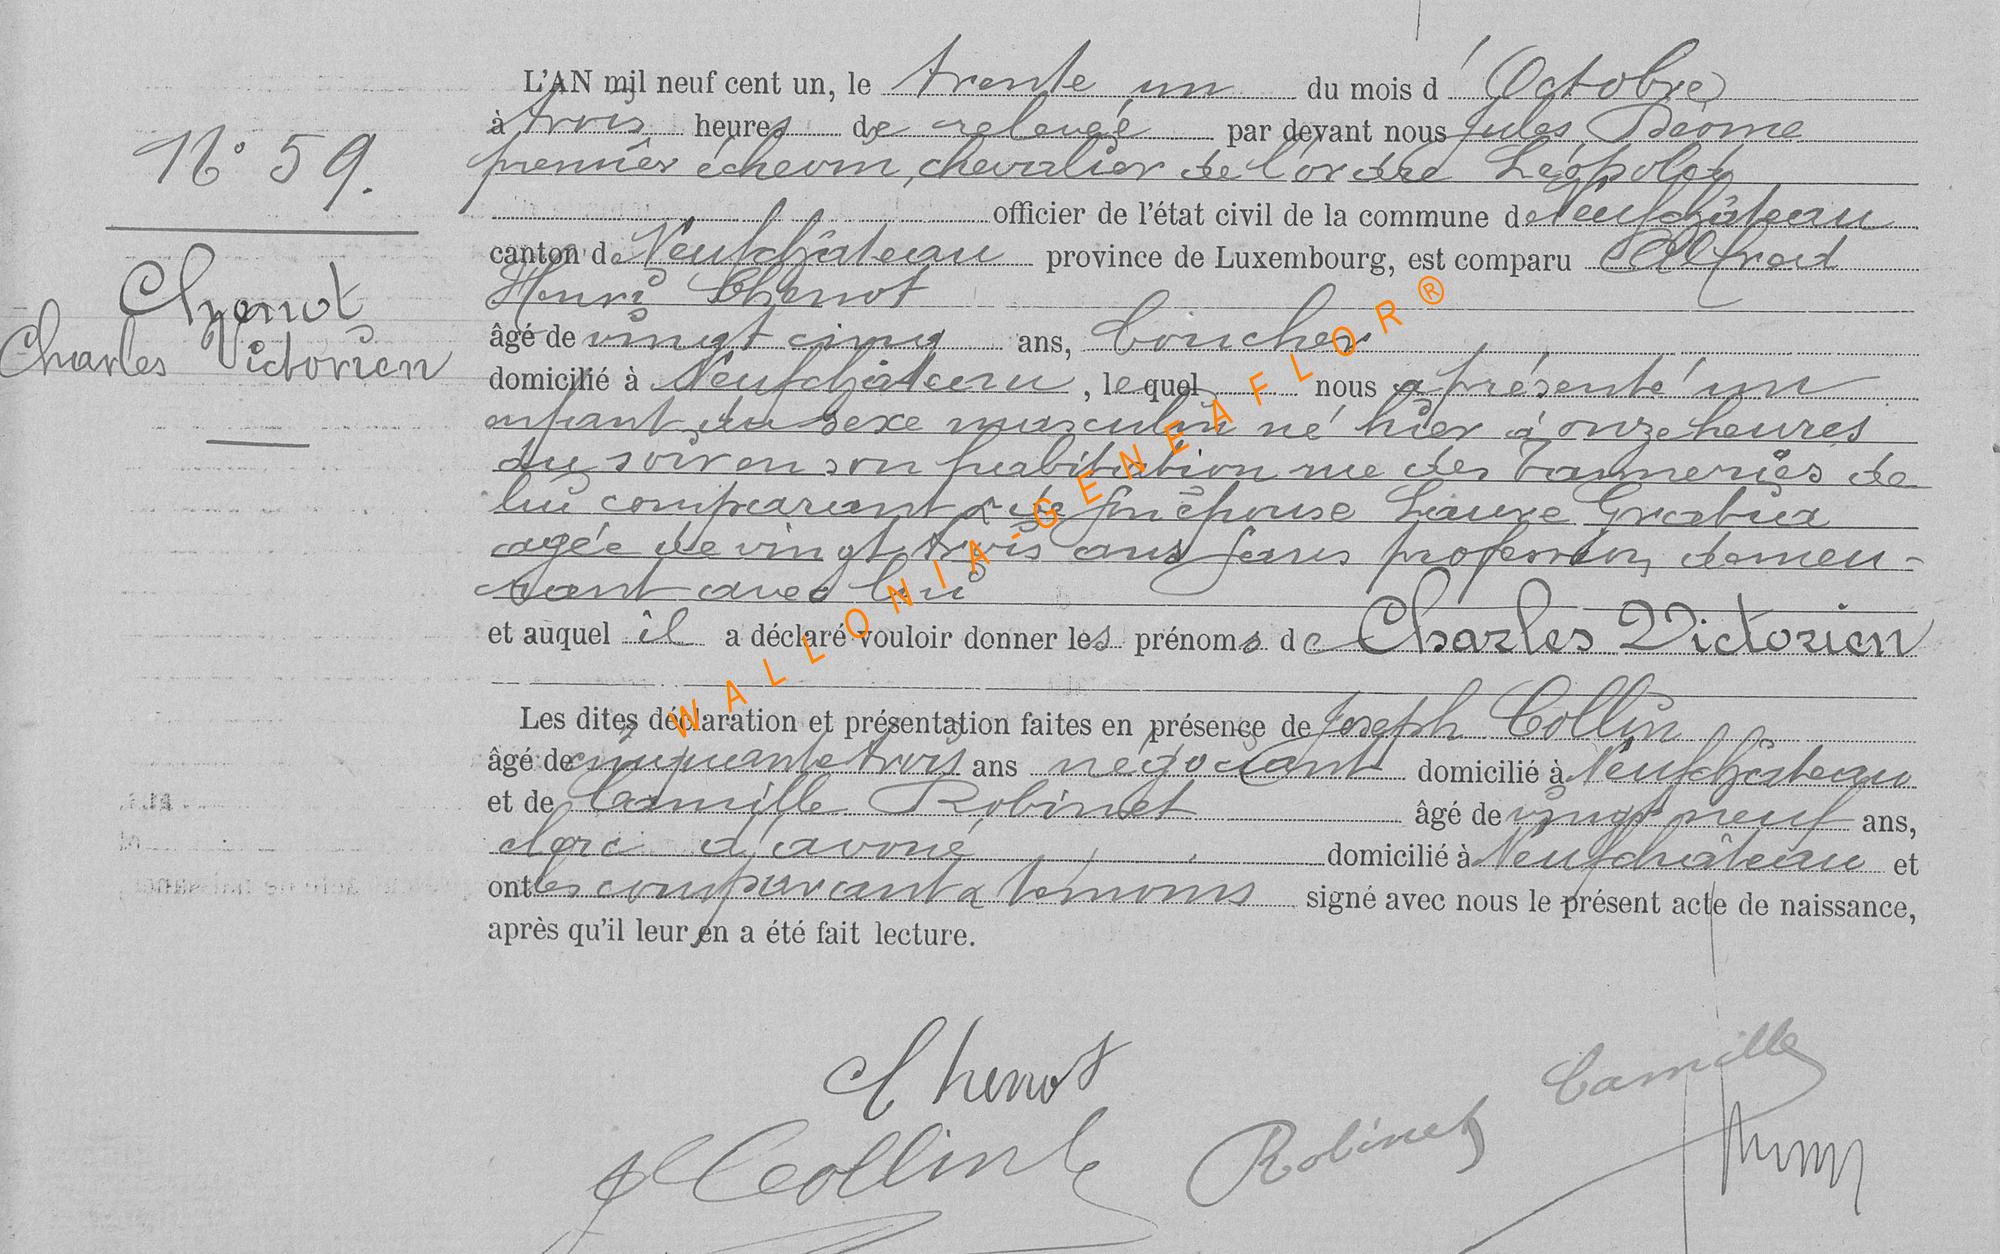 N° 59.
Chenot
Charles Victorien
L'AN mil neuf cent un, le trente un du mois d'Octobre
à trois heures de relevée par devant nous Jules
premier échevin, chevalier de l'ordre Léopold
officier de l'état civil de la commune de Neufchâteau
canton de Neufchâteau province de Luxembourg, est comparu Alfred
Henri Chenot
âgé de vingt cinq ans, boucher
domicilié à Neufchâteau, lequel nous a présenté un
enfant du sexe masculin né hier à onze heures
du soir en son habitation rue des Tanneries de
lui comparant & de son épouse Laure
agée de vingt trois ans sans profession, demeu-
rant avec lui
et auquel il a déclaré vouloir donner les prénoms de Charles Victorien
Les dites déclaration et présentation faites en présence de Joseph Collin
âgé de cinquante trois ans négociant domicilié à Neufchâteau
et de Camille Robinet âgé de vingt neuf ans,
clerc d'avoué domicilié à Neufchâteau et
ont les comparant & témoins signé avec nous le présent acte de naissance,
après qu'il leur en a été fait lecture.
Chenot
J Collin
Robinet Camille
WALLONIA-GENEAFLOR®